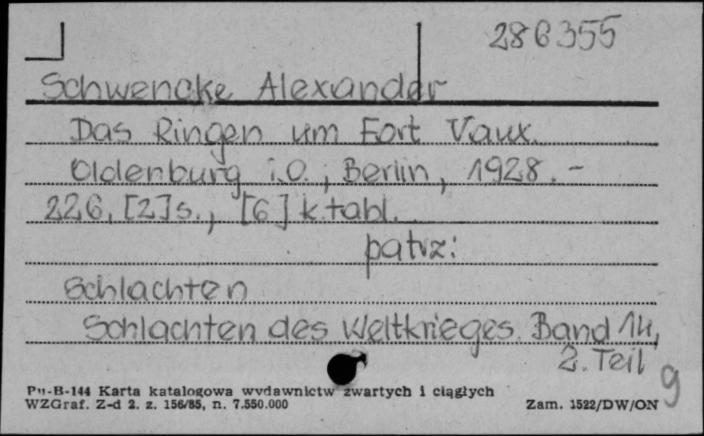 286355
Schwencke Alexander
Das Ringen um Fort Vaux.
Oldenburg i.O., Berlin, 1928. -
226, [2] s., [6] k. tabl.
patrz:
Schlachten
Schlachten des Weltkrieges. Band 14,
2. Teil
9
Pu-B-144 Karta katalogowa wydawnictw zwartych i ciągłych
WZGraf. Z-d 2. z. 156/85, n. 7.550.000
Zam. 1522/DW/ON